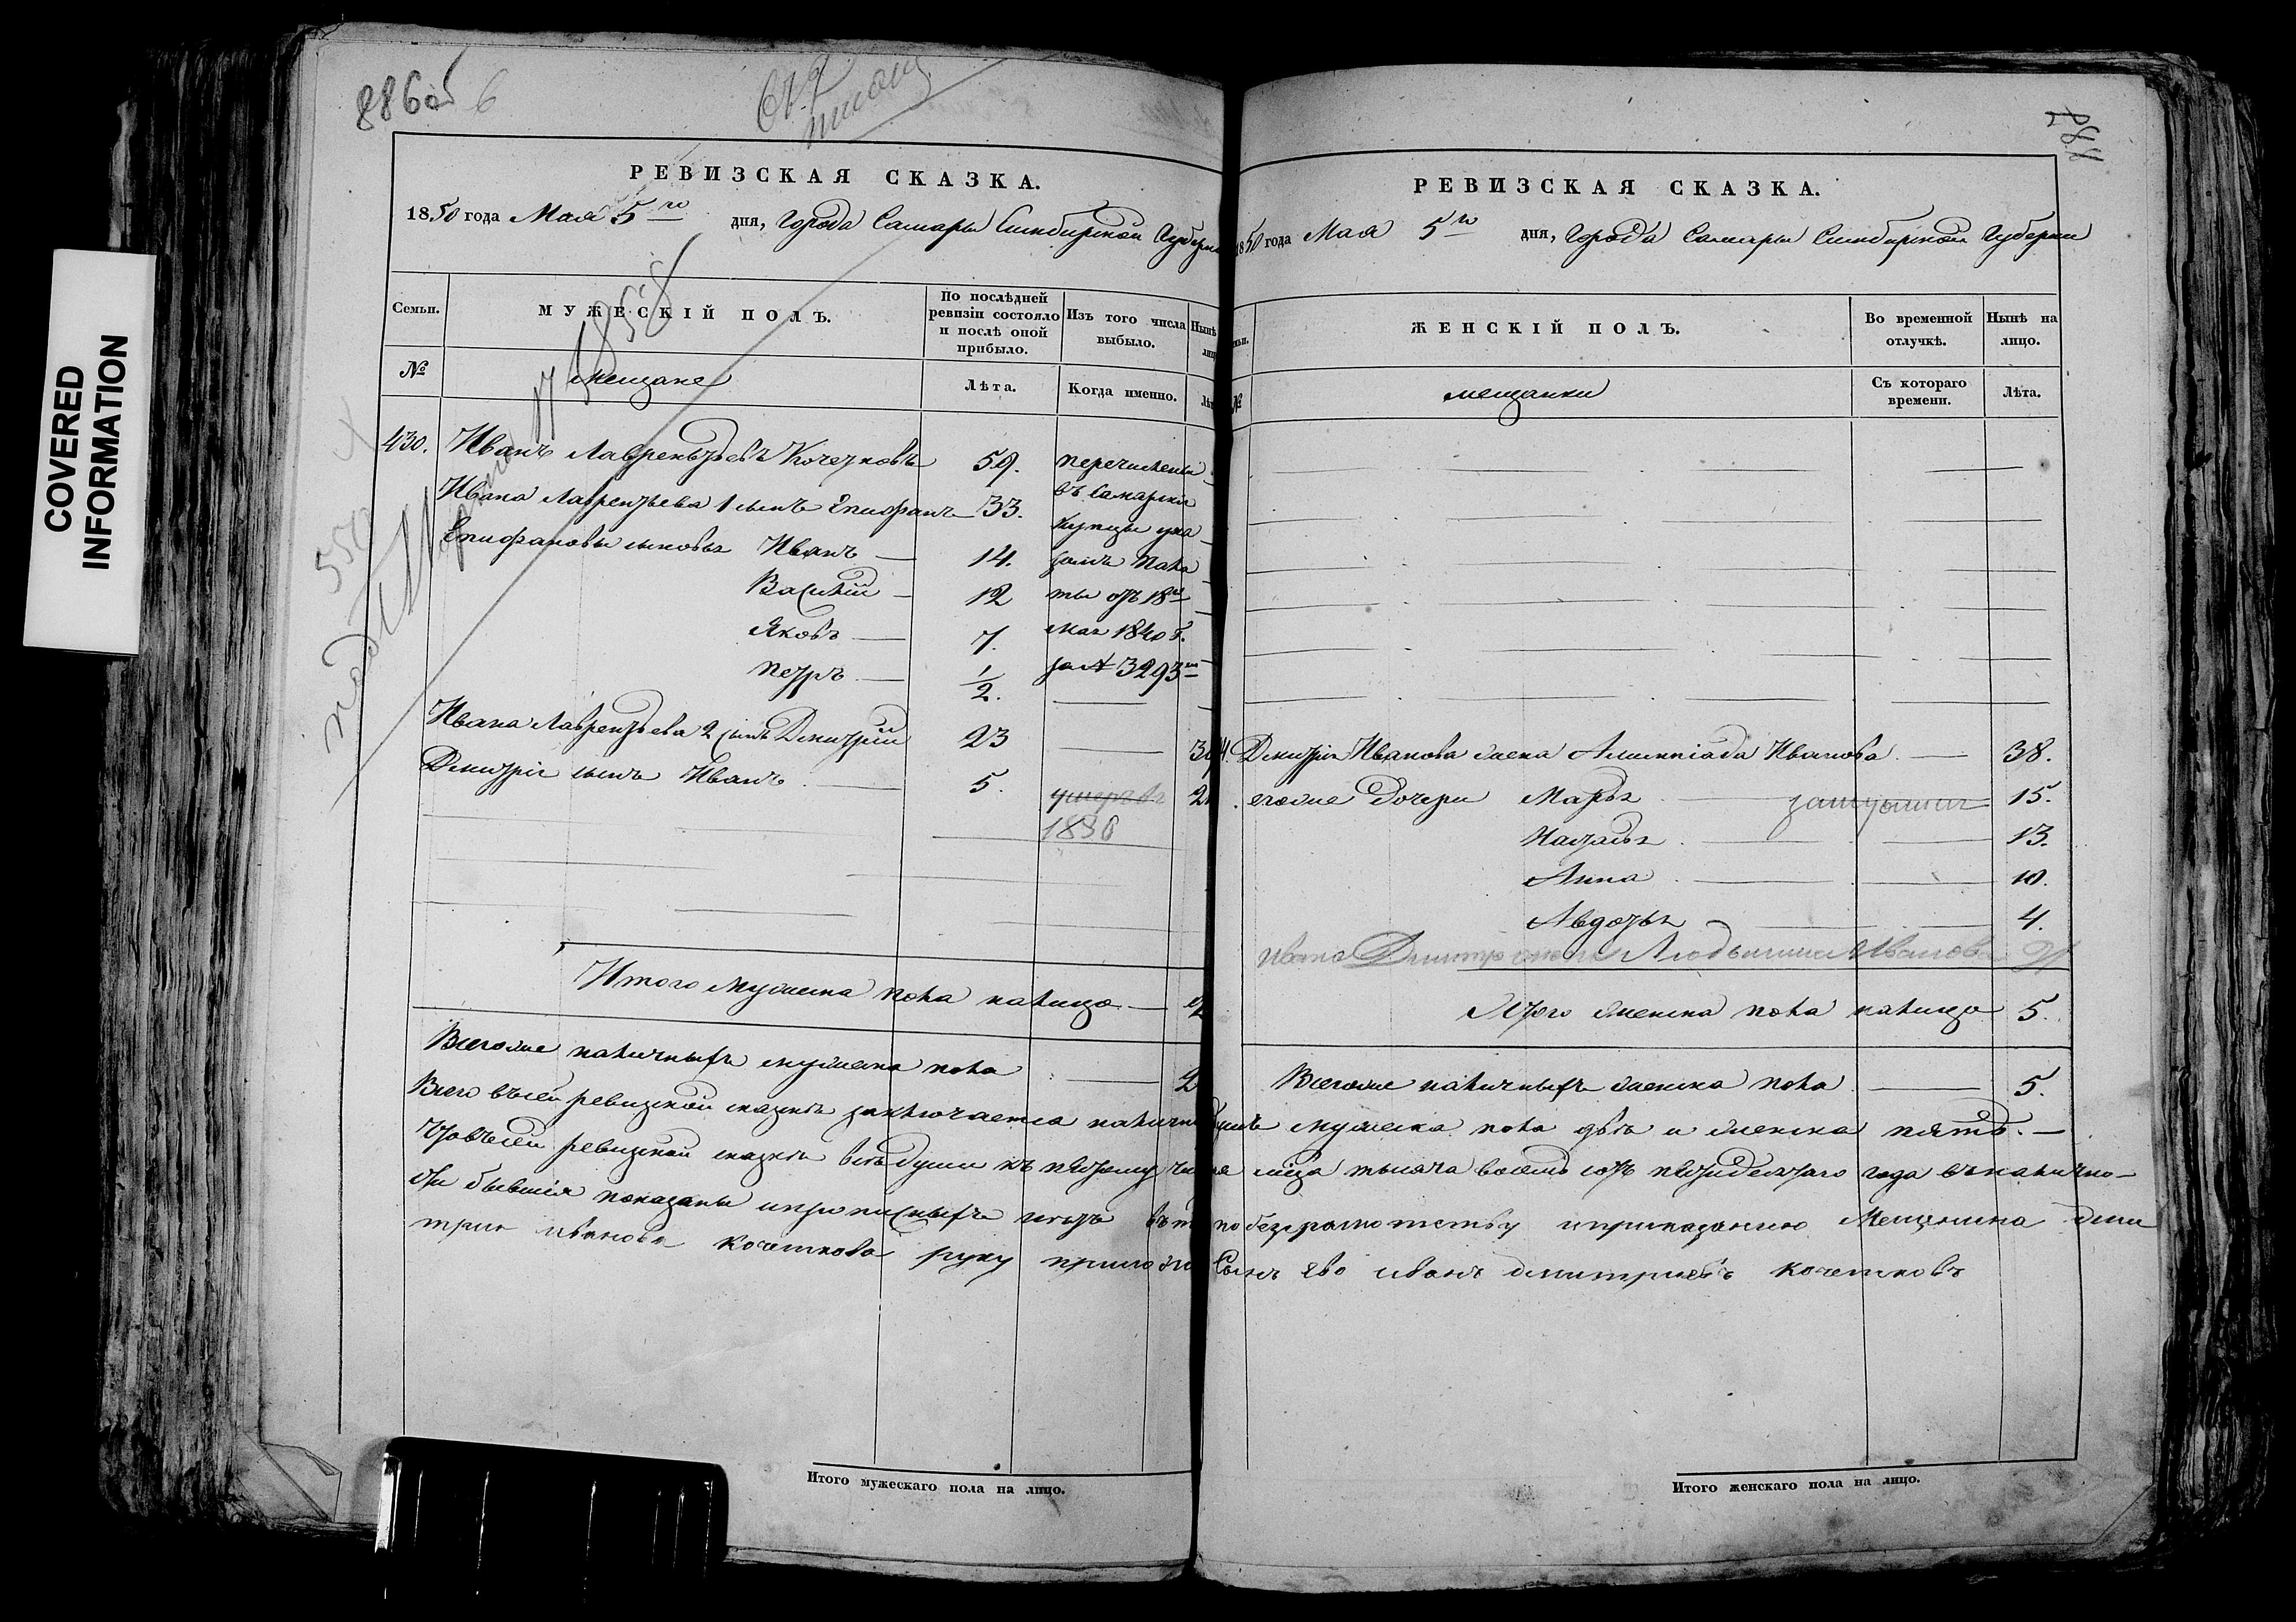 COVERED
INFORMATION
886 об 6
РЕВИЗСКАЯ СКАЗКА.
1850 года Мая 5го дня, Города Самары Симбирской Губерн
Семьи.
МУЖЕСКІЙ ПОЛЪ.
По послѣдней
ревизіи состояло
и послѣ оной
прибыло.
Изъ того числа
выбыло.
Нынѣ
лиц
№
Мещане
Лѣта.
Когда именно.
Лѣт
1858
430. Иванъ Лаврентьевъ Кочетковъ 59. перечислены
Ивана Лаврентьева 1 сынъ Епифанъ 33. въ Самарскіе
Епифановы сыновья Иванъ 14. купцы ука
Василій 12 зомъ Пала
Яковъ 7. ты отъ 18го
Петръ 1/2. мая 1840 г.
за № 3293м
Ивана Лаврентьева 2 сынъ Дмитрій 23 39
Дмитрія сынъ Иванъ 5. умеръ въ 21
1856
Итого мужеска пола налицо 2
Всегоже наличныхъ мужеска пола 2
РЕВИЗСКАЯ СКАЗКА.
1850 года Мая 5го дня, Города Самары Симбирской Губерни
ЖЕНСКІЙ ПОЛЪ.
Во временной
отлучкѣ.
Нынѣ на
лицо.
№
мещанки
Съ котораго
времени.
Лѣта.
Дмитрія Иванова жена Алимпіада Иванова 38.
егоже Дочери Марья замужемъ 15.
Наталья 13.
Анна 10.
Авдотья 4.
Ивана Дмитр жена Иванова 21
Итого женска пола налицо 5.
Всегоже наличныхъ женска пола 5.
Всего въсей ревизской сказкѣ заключается наличныхъ душъ мужеска пола двѣ и женска пять.
Чтовъсей ревизской сказкѣ всѣ души къ пятому числа мая тысяча восемь сотъ пятидесятаго года въ налично-
сти бывшія показаны ипрописныхъ нѣтъ въ том по безграмотству иприказанию Мещенина Дми
трия иванова кочеткова руку приложи Сынъ ево иванъ дмитриевъ кочетковъ
Итого мужескаго пола на лицо.
Итого женскаго пола на лицо.